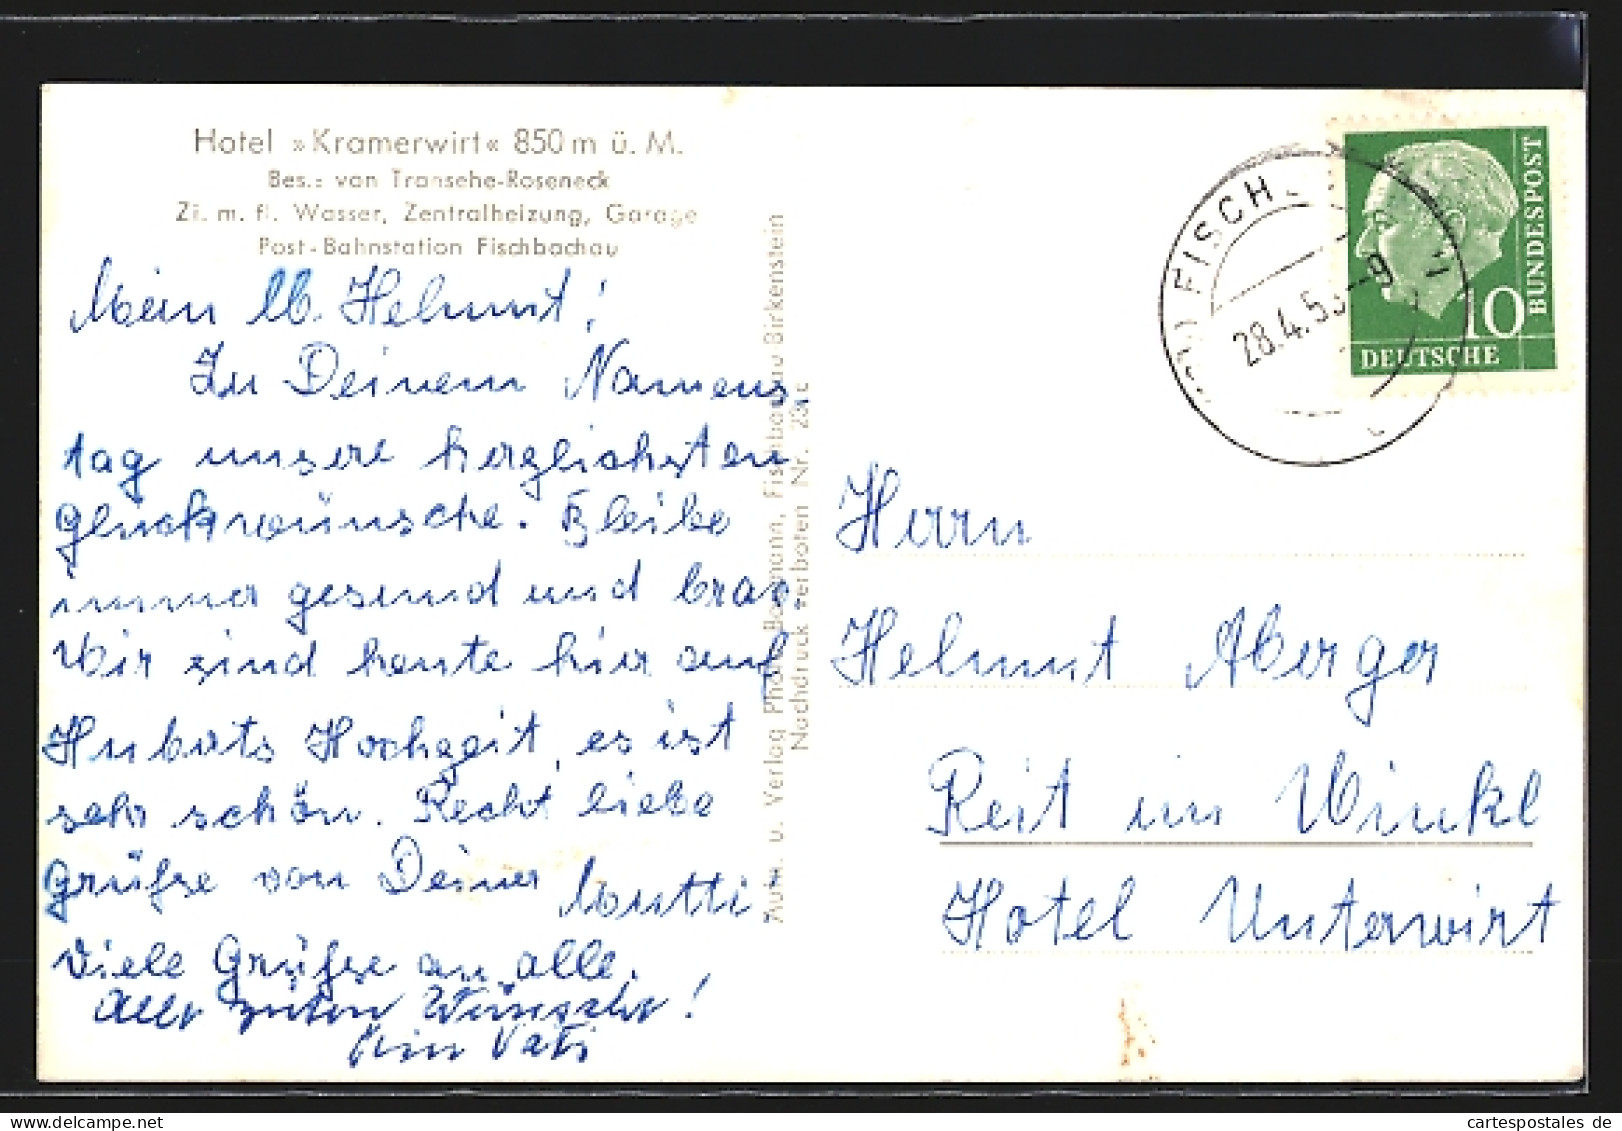 Hotel »Kramerwirt« 850 m ü. M.
Bes.: von Transehe-Roseneck
Zi. m. fl. Wasser, Zentralheizung, Garage
Post-Bahnstation Fischbachau
Mein lb. Helmut!
Zu Deinem Namens-
tag unsere herzlichsten
Glückwünsche. Bleibe
immer gesund und brav
Wir sind heute hier auf
Huberts Hochzeit, es ist
sehr schön. Recht liebe
Grüße von Deiner Mutti
Viele Grüße an alle.
Alle guten Wünsche!
Dein Vati
Aufn. u. Verlag Photo Bachmann, Fischbachau Birkenstein
Nachdruck verboten Nr.
FISCH
28.4.5 -9
BUNDESPOST
10
DEUTSCHE
Herrn
Helmut Aberger
Reit im Winkl
Hotel Unterwirt
cartespostales de